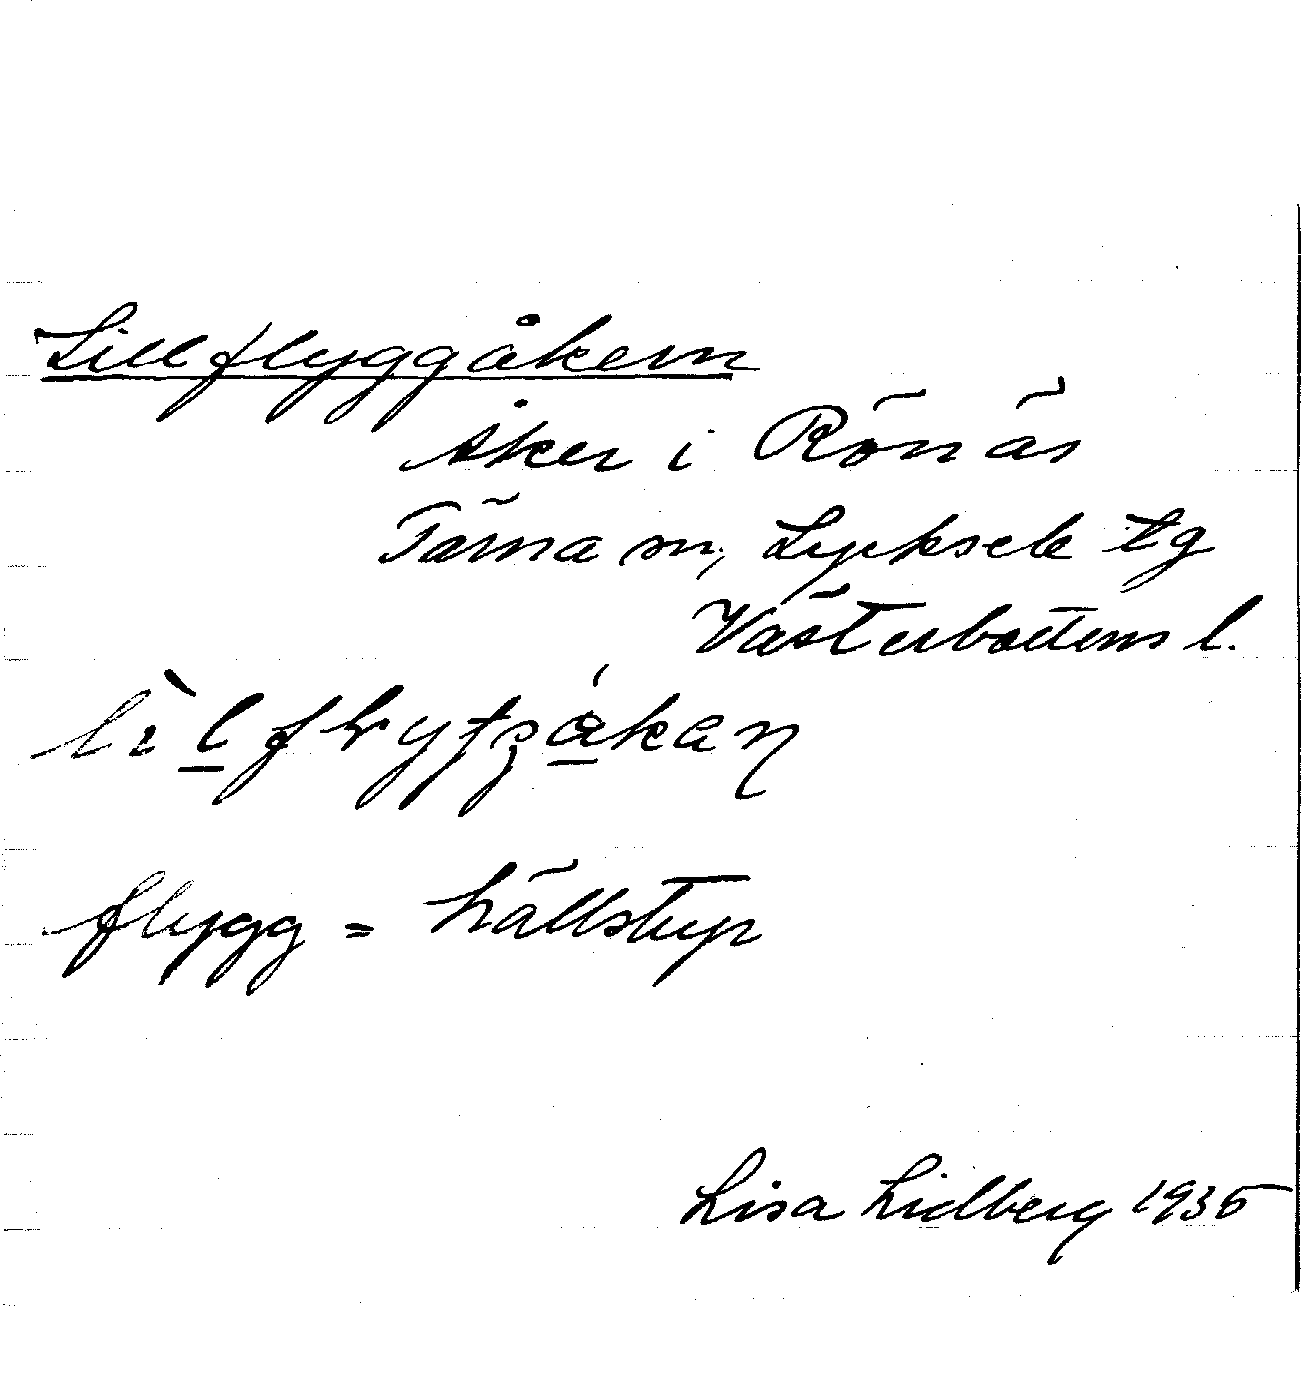 Lillflyggåkern
Åker i Rönäs
Tärna sn, Lycksele tg
Västerbottens l.
flygg = hällstup
Lisa Lidberg 1935